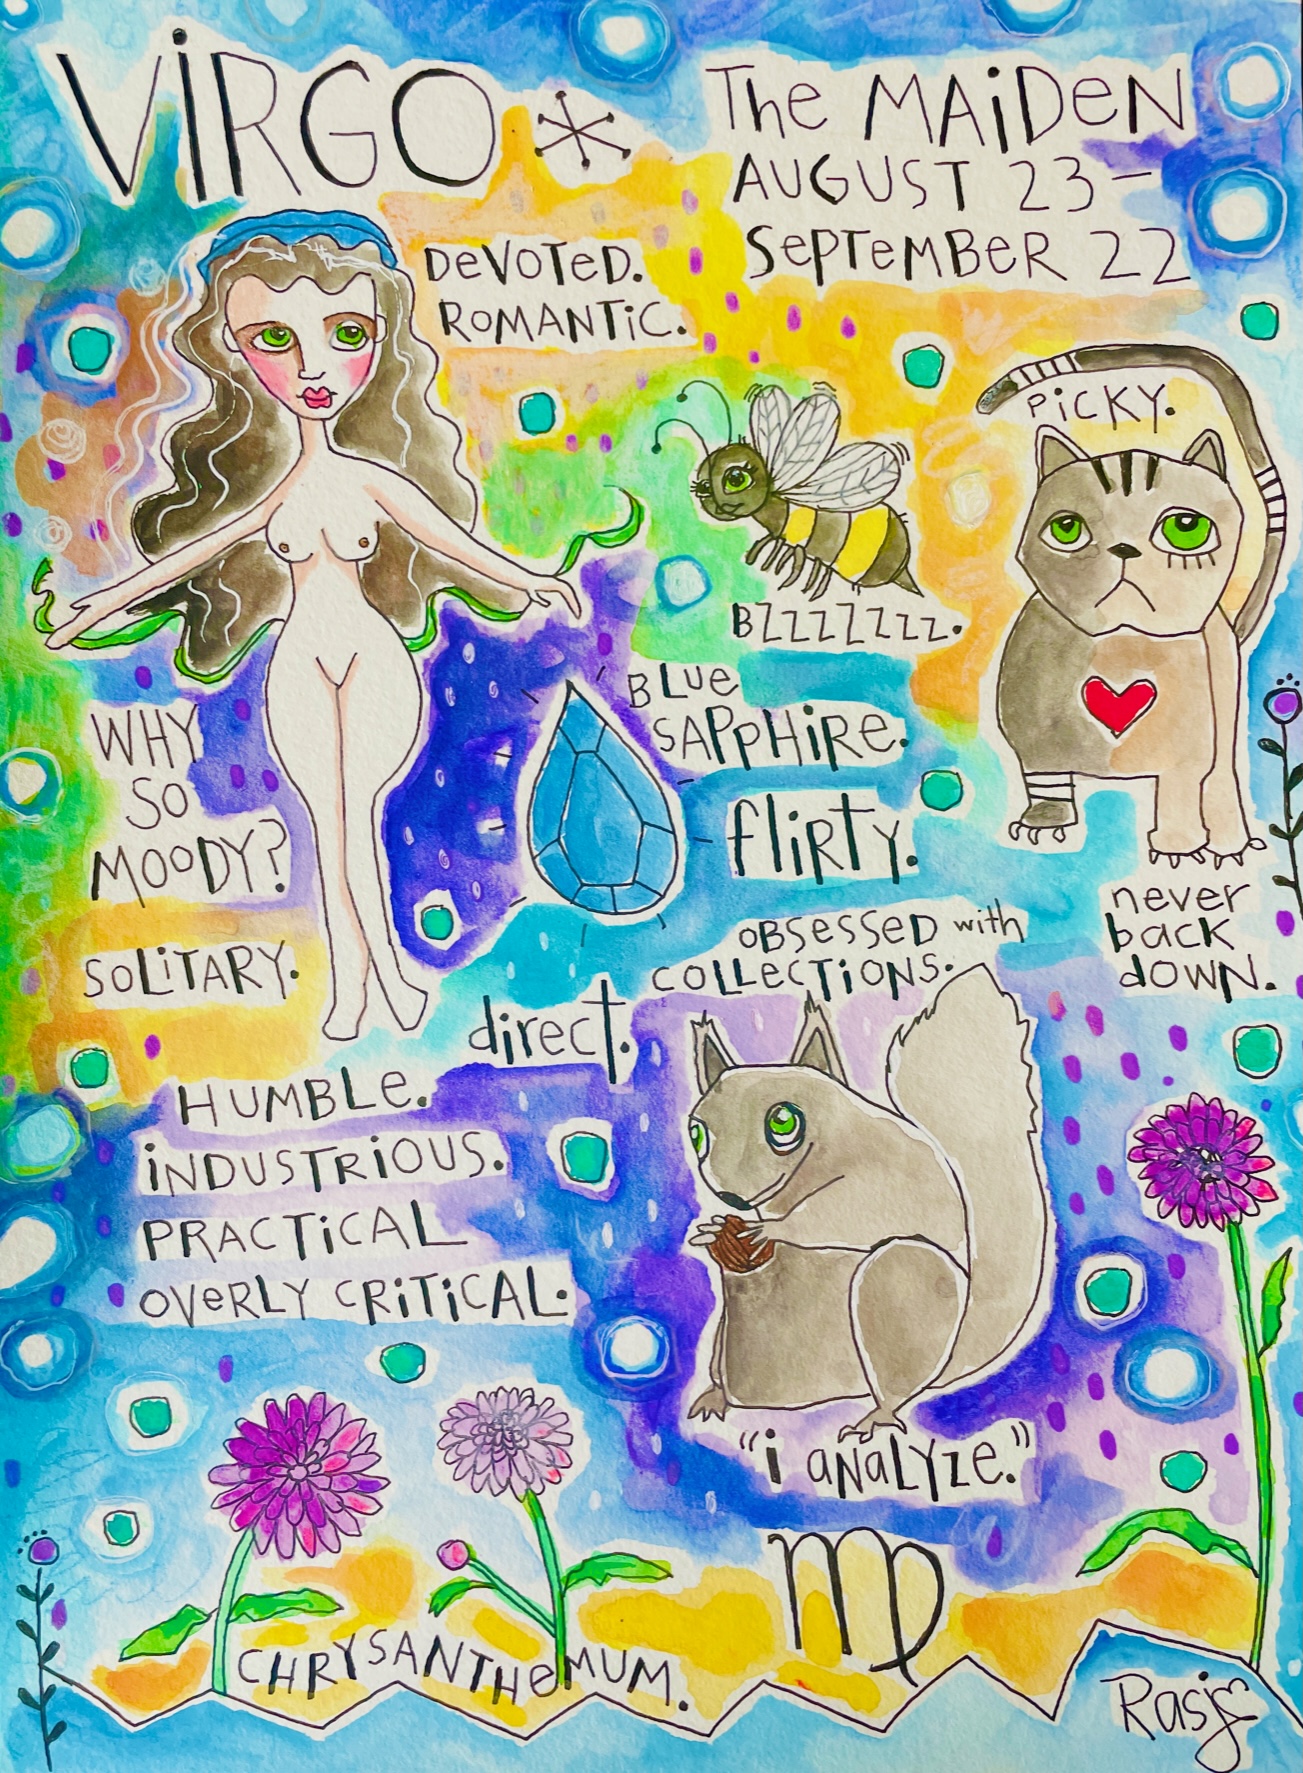 ViRGO
The MAiDeN
AUGUST 23-
SePTeMBeR 22
DeVOTeD.
ROMANTiC.
PiCKY.
BZZZZZZZ.
BLUe
SAPPHiRe.
fLiRTY.
WHY
SO
MOODY?
SOLiTARY.
never
back
DOWN.
OBSeSSeD with
COLLeCTiONS.
direct.
HUMBLe.
iNDUSTRiOUS.
PRACTiCAL
OVeRLY CRiTiCAL.
"i aNaLYze."
CHRYSANTHeMUM.